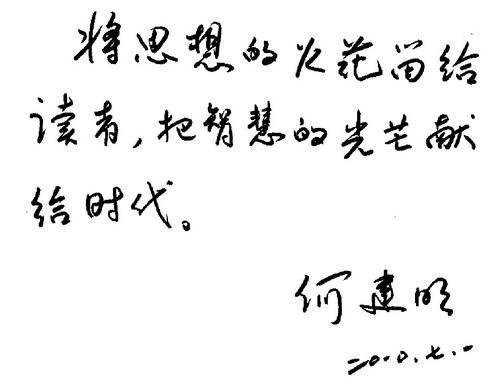 将思想的火花留给
读者，把智慧的光芒献
给时代。
何建明
二〇〇.七.一